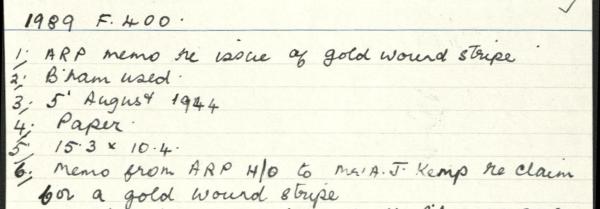 1989 F.400.
1. ARP memo re issue of gold wound stripe
2. B'ham used.
3. 5' August 1944
4. Paper.
5. 15.3 x 10.4.
6. Memo from ARP H/O to Mr A.J. Kemp re claim
for a gold wound stripe